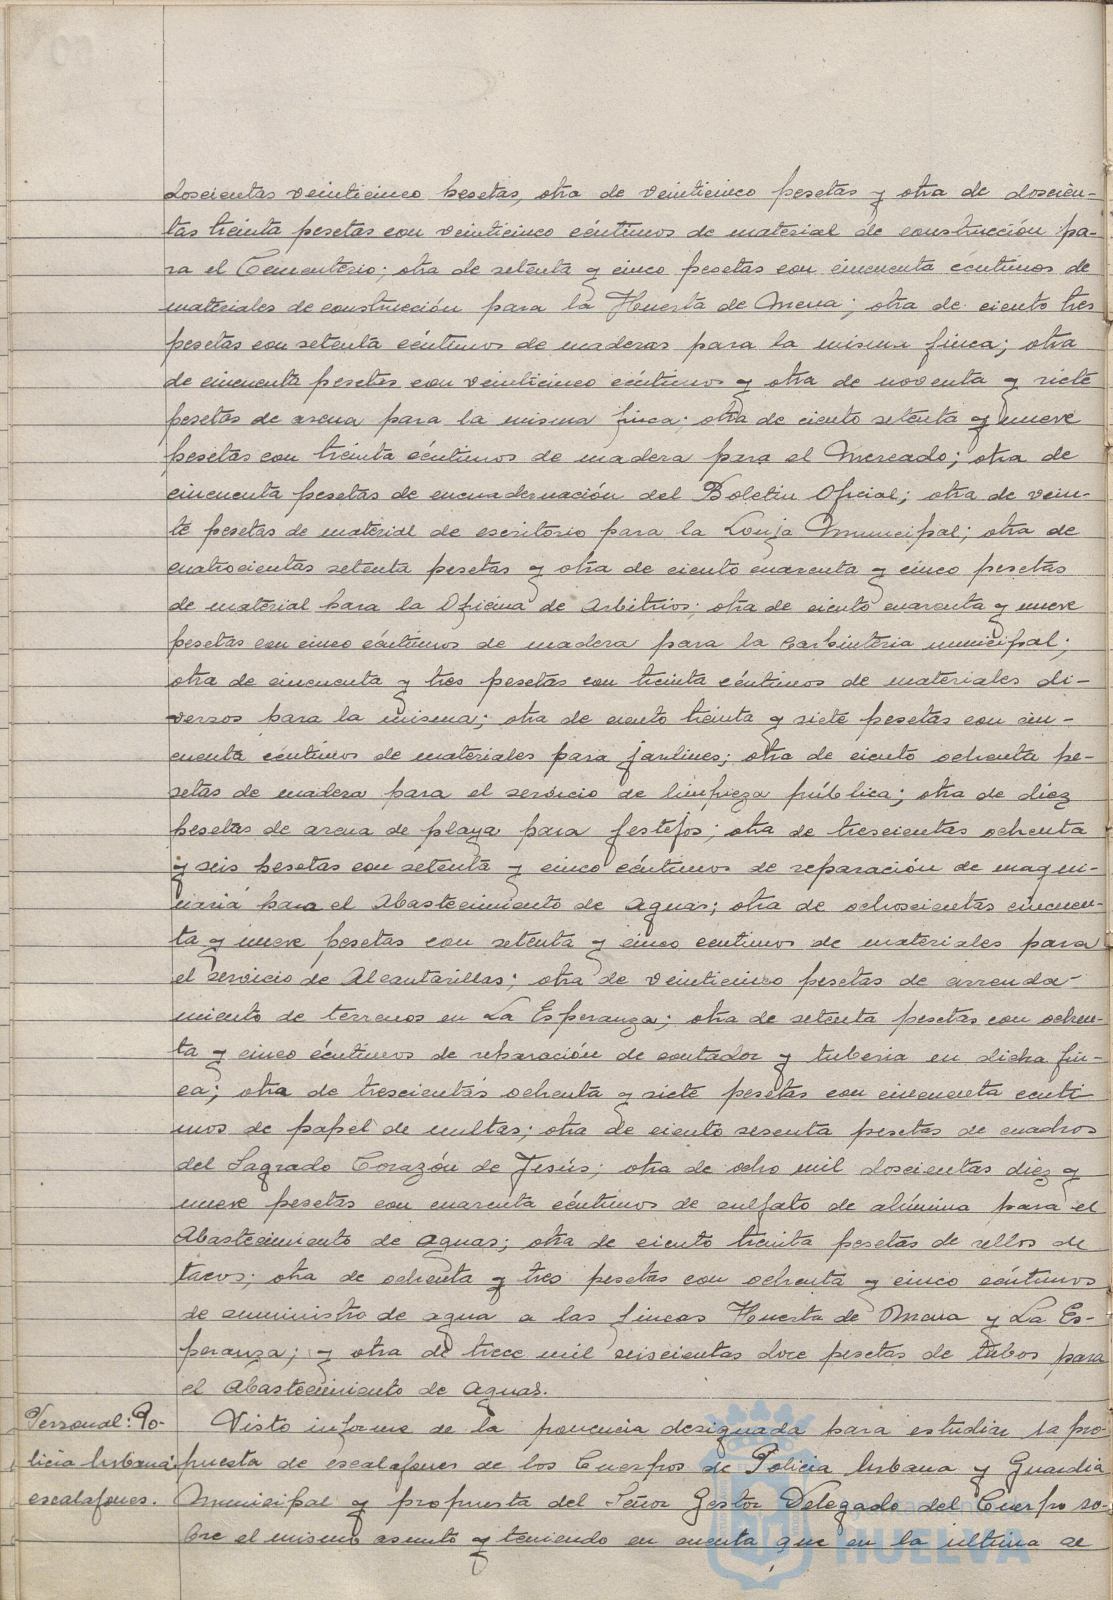 doscientas veinticinco pesetas, otra de veinticinco pesetas y otra de doscien-
tas treinta pesetas con veinticinco céntimos de material de construcción pa-
ra el Cementerio; otra de setenta y cinco pesetas con cincuenta céntimos de
materiales de construcción para la Huerta de Mena; otra de ciento tres
pesetas con setenta céntimos de maderas para la misma finca; otra
de cincuenta pesetas con veinticinco céntimos y otra de noventa y siete
pesetas de arena para la misma finca; otra de ciento setenta y nueve
pesetas con treinta céntimos de madera para el Mercado; otra de
cincuenta pesetas de encuadernación del Boletin Oficial; otra de vein-
te pesetas de material de escritorio para la Lonja Municipal; otra de
cuatrocientas setenta pesetas y otra de ciento cuarenta y cinco pesetas
de material para la Oficina de Arbitrios; otra de ciento cuarenta y nueve
pesetas con cinco céntimos de madera para la Carpinteria municipal;
otra de cincuenta y tres pesetas con treinta céntimos de materiales di-
versos para la misma; otra de ciento treinta y siete pesetas con cin-
cuenta céntimos de materiales para jardines; otra de ciento ochenta pe-
setas de madera para el servicio de limpieza pública; otra de diez
pesetas de arena de playa para festejos; otra de trescientas ochenta
y seis pesetas con setenta y cinco céntimos de reparación de maqui-
naria para el Abastecimiento de Aguas; otra de ochoscientas cincuen-
ta y nueve pesetas con setenta y cinco centimos de materiales para
el servicio de Alcantarillas; otra de veinticinco pesetas de arrenda-
miento de terrenos en La Esperanza; otra de setenta pesetas con ochen-
ta y cinco céntimos de reparación de contador y tuberia en dicha fin-
ca; otra de trescientas ochenta y siete pesetas con cincuenta cénti
mos de papel de multas; otra de ciento sesenta pesetas de cuadros
del Sagrado Corazón de Jesús; otra de ocho mil doscientas diez y
nueve pesetas con cuarenta céntimos de sulfato de alúmina para el
Abastecimiento de Aguas; otra de ciento treinta pesetas de sellos de
tacos; otra de ochenta y tres pesetas con ochenta y cinco céntimos
de suministro de agua a las fincas Huerta de Mena y La Es-
peranza; y otra de trece mil seiscientas doce pesetas de tubos para
el Abastecimiento de Aguas.
Personal: Po-
licia Urbana
escalafones.
Visto informe de la ponencia designada para estudiar la pro-
puesta de escalafones de los Cuerpos de Policia Urbana y Guardia
Municipal y propuesta del Señor Gestor Delegado del Cuerpo so-
bre el mismo asunto y teniendo en cuenta que en la última de
HUELVA